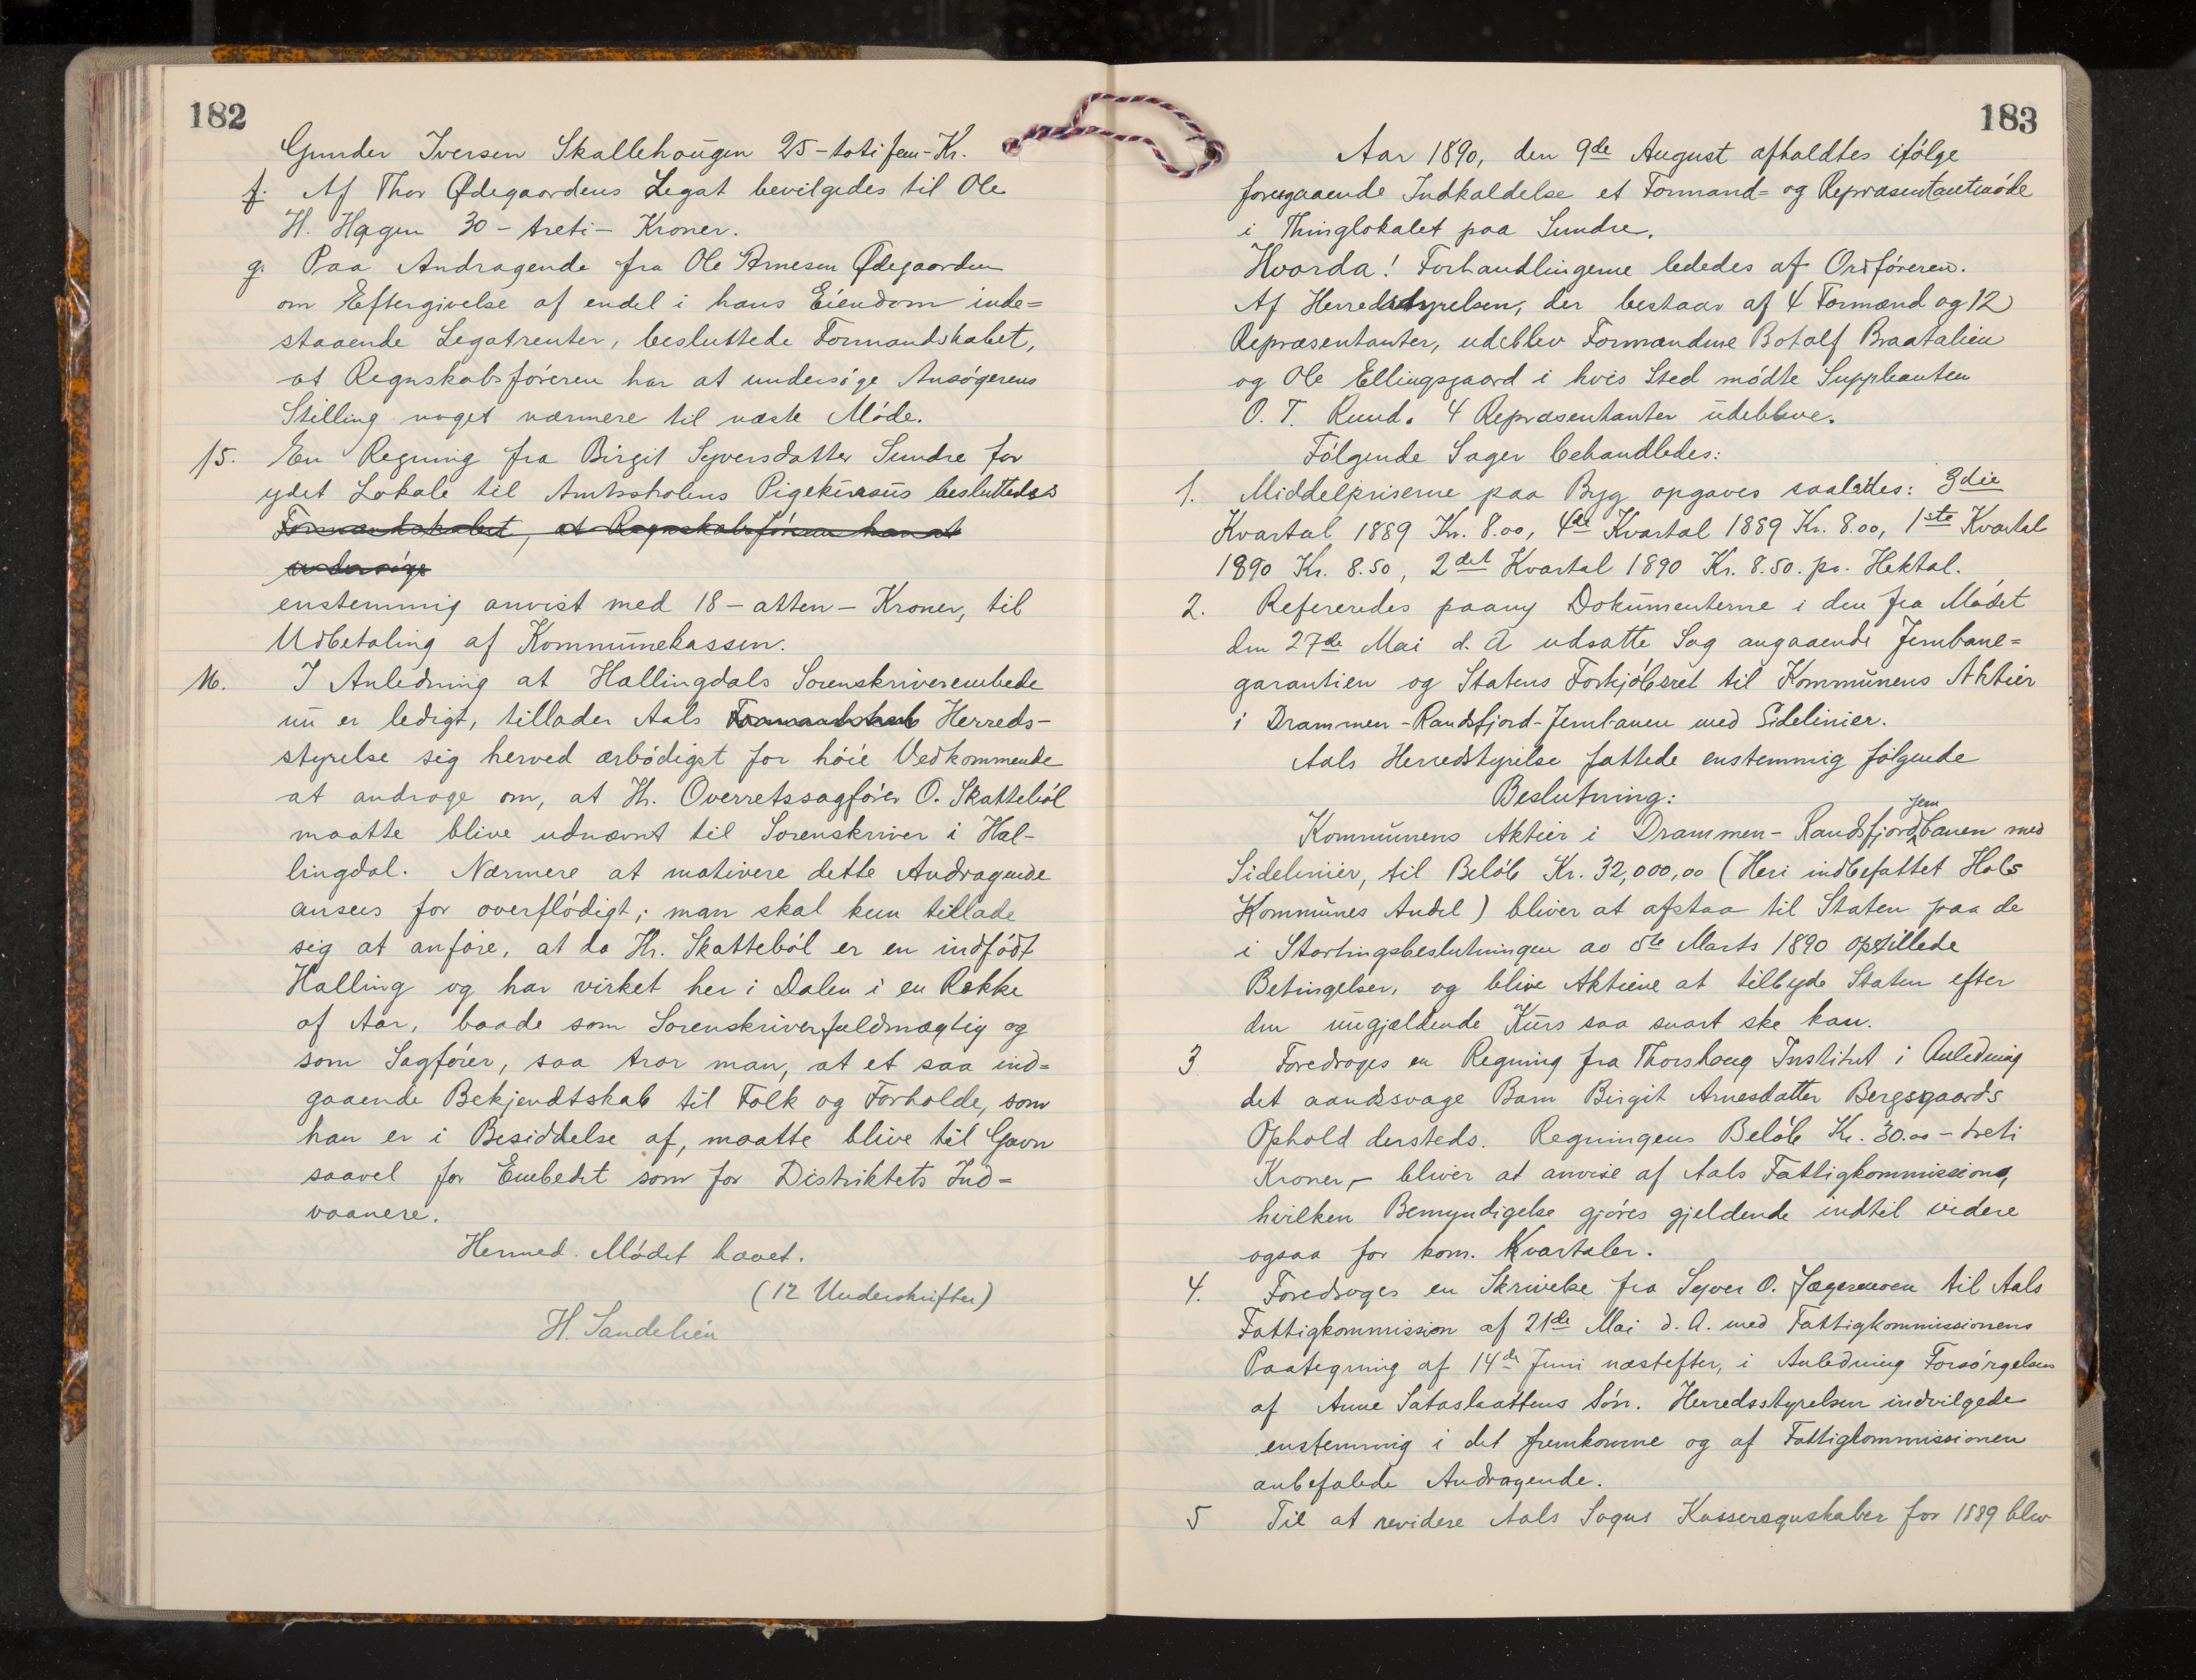 182
Gunder Iversen Skallehougen 25-toti fem-Kr.
f. Af Thor Ødegaardens Legat bevilgedes til Ole
H. Hagen 30 - treti - Kroner.
g. Paa Andragende fra Ole Arnesen Ødegaarden
om Eftergivelse af endel i hans Eiendom inde=
staaende Legatrenter, besluttede Formandskabet,
at Regnskabsføreren har at undersøge Ansøgerens
Stilling noget nærmere til næste Møde.
15. En Regning fra Birgit Syversdatter Sundre for
ydet Lokale til Amtsskolens Pigekursus besluttedes
Formandskabet, at Regnskabsføreren har at
undersøge
enstemmig anvist med 18 - atten - Kroner, til
Udbetaling af Kommunekassen.
16. I Anledning at Hallingdals Sorenskriverembede
nu er ledigt, tillader Aals Formandskab Herreds-
styrelse sig herved ærbødigst for høie Vedkommende
at androge om, at Hr. Overretssagfører O. Skattebøl
maatte blive udnævnt til Sorenskriver i Hal-
lingdal. Nærmere at motivere dette Andragende
ansees for overflødigt; man skal kun tillade
sig at anføre, at da Hr. Skattebøl er en indfødt
Halling og har virket her i Dalen i en Række
af Aar, baade som Sorenskriverfuldmægtig og
som Sagfører, saa tror man, at et saa ind=
gaaende Bekjendtskab til Folk og Forholde, som
han er i Besiddelse af, maatte blive til Gavn
saavel for Embedet som for Distriktets Ind=
vaanere.
Hermed Mødet hævet.
(12 Underskrifter)
H. Sandelien
183
Aar 1890, den 9de August afholdtes ifølge
foregaaende Indkaldelse et Formand= og Repræsentantmøde
i Thinglokalet paa Sundre.
Hvorda! Forhandlingerne lededes af Ordføreren.
Af Herredsstyrelsen, der bestaar af 4 Formænd og 12
Repræsentanter, udeblev Formændene Botolf Braatalien
og Ole Ellingsgaard i hvis Sted mødte Suppleanten
O. T. Ruud. 4 Repræsentanter udebleve.
Følgende Sager behandledes:
1. Middelpriserne paa Byg opgaves saaledes: 3die
Kvartal 1889 Kr. 8.00, 4de Kvartal 1889 Kr. 8.00, 1ste Kvartal
1890 Kr. 8.50, 2det Kvartal 1890 Kr. 8.50. pr. Hektol.
2. Refereredes paany Dokumenterne i den fra Mødet
den 27de Mai d. A udsatte Sag angaaende Jernbane=
garantien og Statens Forkjøbsret til Kommunens Aktier
i Drammen-Randsfjord-Jernbanen med Sidelinier.
Aals Herredstyrelse fattede enstemmig følgende
Beslutning:
Kommunens Aktier i Drammen-Randsfjordjernbanen med
Sidelinier, til Beløb Kr. 32,000,00 (Heri indbefattet Hols
Kommunes Andel) bliver at afstaa til Staten paa de
i Stortingsbeslutningen av 5te Marts 1890 opstillede
Betingelser, og blive Aktiene at tilbyde Staten efter
den nugjældende Kurs saa snart ske kan.
3 Foredroges en Regning fra Thorshaug Institut i Anledning
det aandssvage Barn Birgit Arnesdatter Bergsgaards
Ophold dersteds. Regningens Beløb Kr. 30.00 - treti
Kroner, - bliver at anvise af Aals Fattigkommission,
hvilken Bemyndigelse gjøres gjeldende indtil videre
ogsaa for kom. Kvartaler.
4. Foredroges en Skrivelse fra Syver O. til Aals
Fattigkommission af 21de Mai d. A. med Fattigkommissionens
Paategning af 14de Juni næstefter, i Anledning Forsørgelsen
af Anne Sataslaattens Søn. Herredsstyrelsen indvilgede
enstemmig i det fremkomne og af Fattigkommissionen
anbefalede Andragende.
5 Til at revidere Aals Sogns Kasseregnskaber for 1889 blev